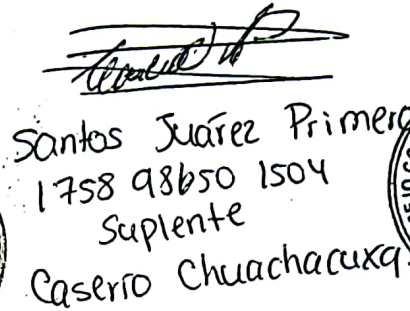 Santos Juárez Primero
1758 98650 1504
Suplente
Caserío Chuachacuxq.